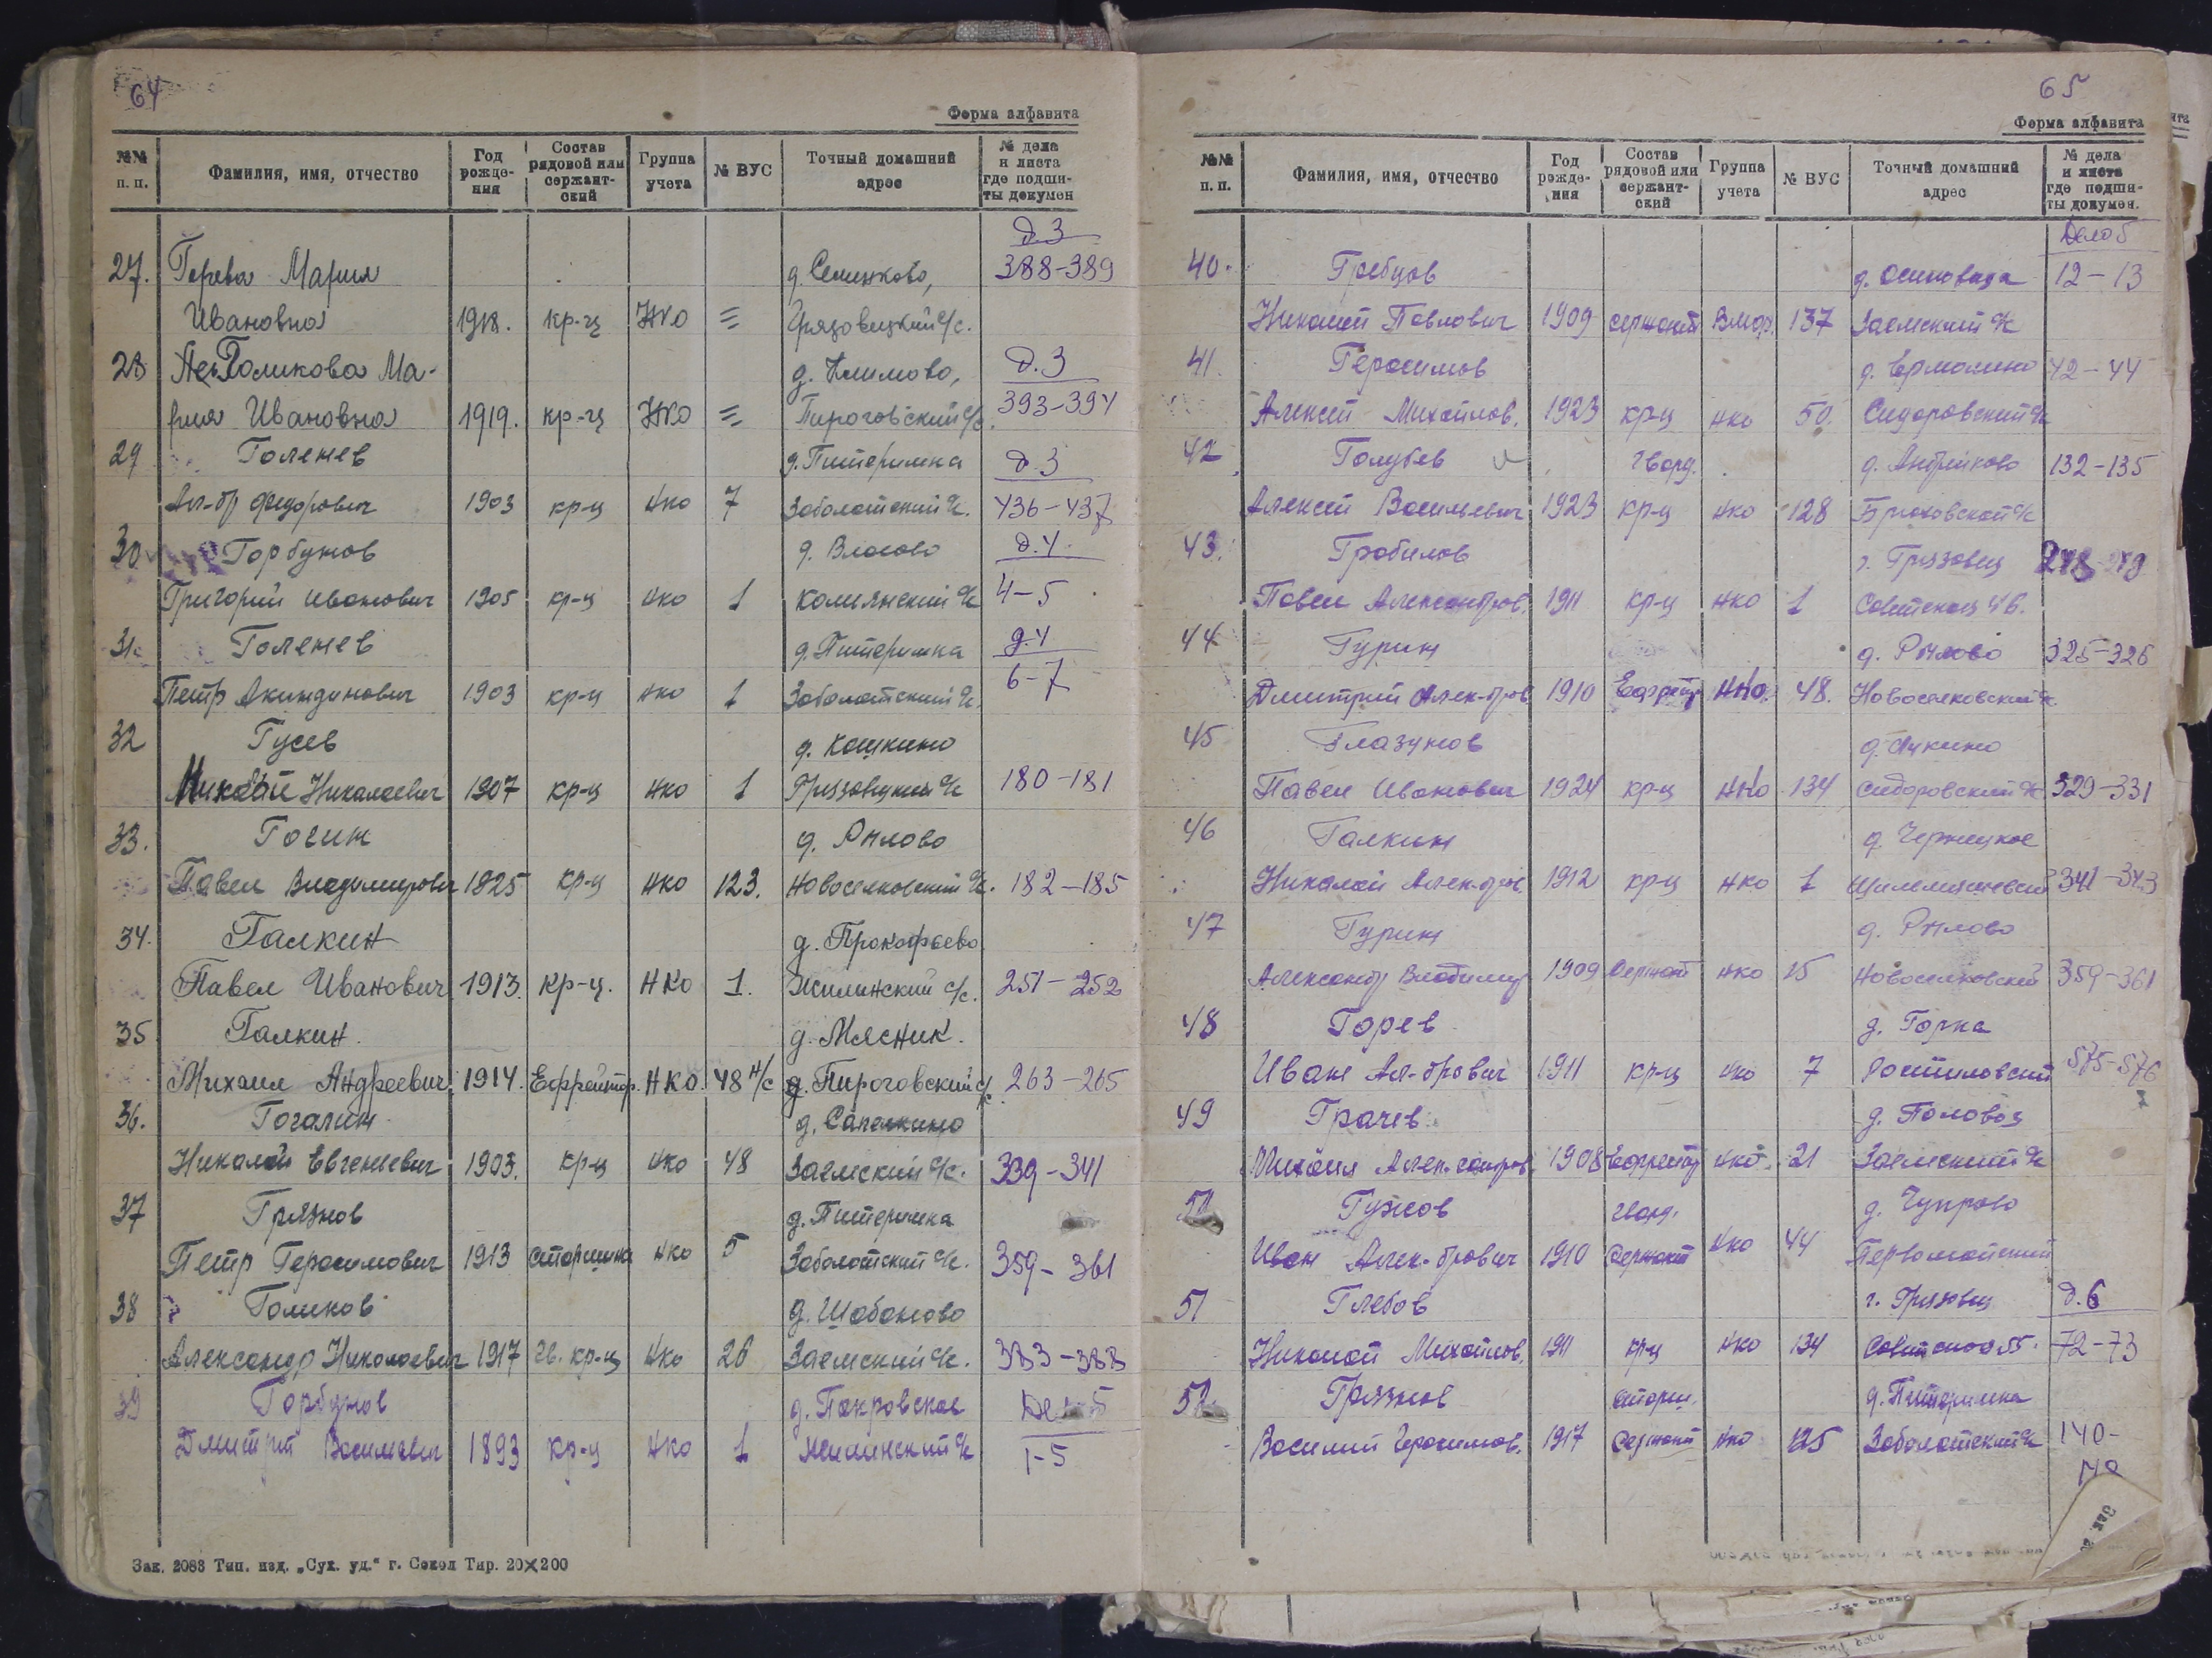 64
Форма алфавита
№№ п. п. Фамилия, имя, отчество Год рожде-ния Состав рядовой или сержант-ский Группа учета № ВУС Точный домашний адрес № дела и листа где подши-ты докумен
д.3
27. Горева Мария д. Семенково, 388-389
Ивановна 1918. кр-ц НКО = Грязовецкий с/с.
28 Голикова Ма- д. Климово, д.3
рия Ивановна 1919. кр-ц НКО = Пироговский с/с. 393-394
29 Голенев д. Питеримка д.3
Ал-др Федорович 1903 кр-ц нко 7 Заболотский с/с. 436-437
30 Горбунов д. Власово д.4.
Григорий Иванович 1905 кр-ц нко 1 Комьянский с/с 4-5
31. Голенев д. Питеримка д.4
Петр Акиндинович 1903 кр-ц нко 1 Заболотский с/с. 6-7
32 Гусев д. Кошкино
Николай Николаевич 1907 кр-ц нко 1 Грязовецкий с/с 180-181
33. Гогин д. Рылово
Павел Владимирович 1925 кр-ц нко 123. Новоселковский с/с. 182-185
34. Галкин д. Прокофьево
Павел Иванович 1913. кр-ц. НКО 1. Жилинский с/с. 251-252
35 Галкин. д. Мясник.
Михаил Андреевич. 1914. Ефрейтор. НКО. 48 н/с д. Пироговский с/с. 263-265
36. Гогалин д. Сапелкино
Николай Евгеньевич 1903. кр-ц нко 48 Заемский с/с. 339-341
37 Грязнов д. Питеримка
Петр Герасимович 1913 старшина нко 5 Заболотский с/с. 359-361
38 Голиков д. Шабаново
Александр Николаевич 1917 гв. кр-ц нко 26 Заемский с/с. 383-388
39 Горбунов д. Покровское Дело 5
Дмитрий Васильевич 1893 кр-ц нко 1 Жилинский с/с 1-5
Зак. 2083 Тип. изд. „Сух. уд.“ г. Сокол Тир. 20×200
65
Форма алфавита
№№ п. п. Фамилия, имя, отчество Год рожде-ния Состав рядовой или сержант-ский Группа учета № ВУС Точный домашний адрес № дела и листа где подши-ты докумен.
Дело 5
40. Гребцов д. Осиновица 12-13
Николай Павлович 1909 сержант 137 Заемский с/с
41. Герасимов д. Ермолино 42-44
Алексей Михайлов. 1923 кр-ц нко 50. Сидоровский с/с
42 Голубев гвард. д. Андрейково 132-135
Алексей Васильевич 1923 кр-ц нко 128 с/с
43. Гробилов г. Грязовец 278-279
Павел Александров. 1911 кр-ц нко 1 Советская 46.
44 Гурин д. Рылово 325-326
Дмитрий Алек-дров 1910 Ефрейтр НКО. 48. Новоселковский с/с
45 Глазунов д. Лукино
Павел Иванович 1924 кр-ц НКО 134 Сидоровский с/с 329-331
46 Галкин д. Чернецкое
Николай Алек-дров. 1912 кр-ц нко 1 341-343
47 Гурин д. Рылово
Александр Владимир 1909 Сержант нко 15 Новоселковский 359-361
48 Горев д. Горка
Иван Ал-дрович 1911 кр-ц нко 7 Ростиловский 575-576
49 Грачев д. Половоз
Михаил Александров. 1908 Ефрейтор нко 21 Заемский с/с
50 Гужов гвард. д. Чупрово
Иван Алек-дрович 1910 Сержант нко 44 Первомайский
51 Глебов г. Грязовец д.6
Николай Михайлов. 1911 кр-ц нко 134 Советская 55. 72-73
52. Грязнов старш. д. Питеримка
Василий Герасимов. 1917 Сержант нко 125 Заболотский с/с 140-